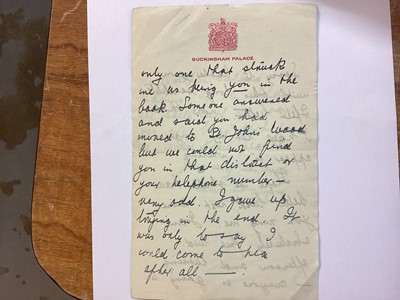 BUCKINGHAM PALACE
only one that struck
me as being you in the
book. Someone answered
and said you had
moved to St. John's Wood
but we could not find
you in that district or
your telephone number —
very odd. I gave up
trying in the end. It
was only to say I
could come to tea
after all —